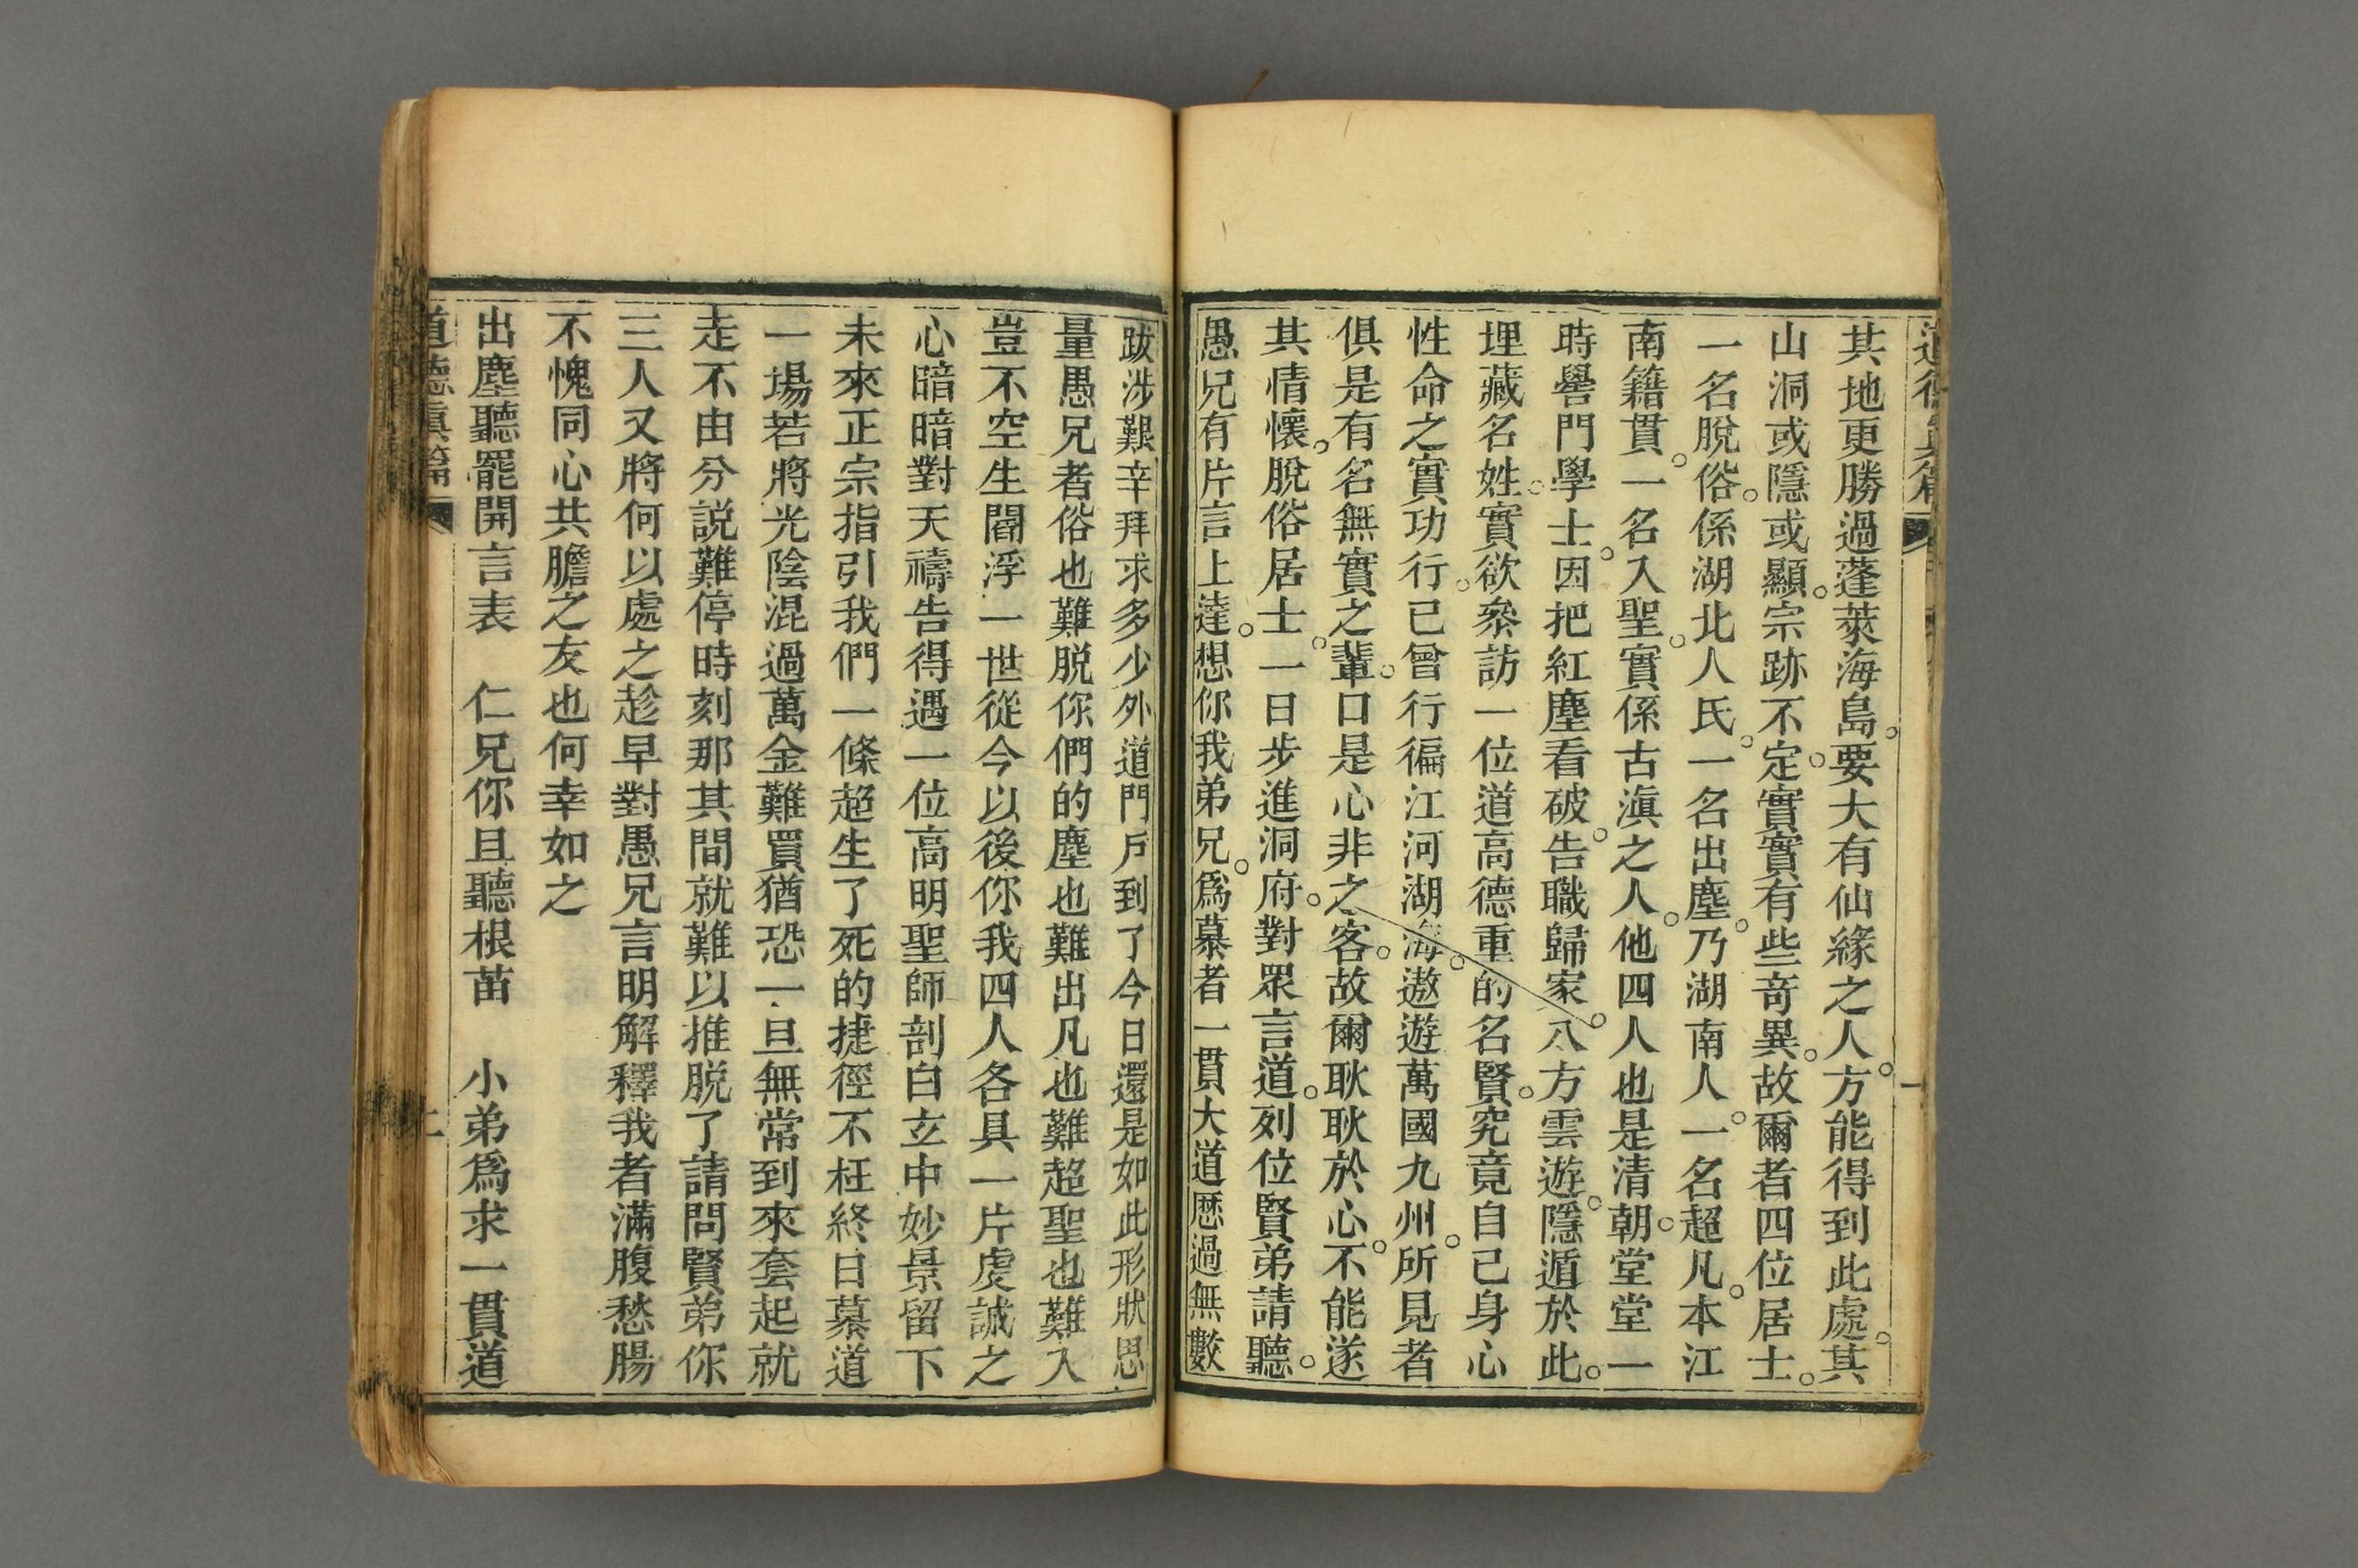 道德真篇 一
其地更勝過蓬萊海島。要大有仙緣之人。方能得到此處。其
山洞或隱或顯。宗跡不定。實實有些奇異。故爾者四位居士。
一名脫俗。係湖北人氏。一名出塵。乃湖南人。一名超凡。本江
南籍貫。一名入聖。實係古滇之人。他四人也是清朝。堂堂一
時譽門學士。因把紅塵看破。告職歸家。八方雲遊。隱遁於此。
埋藏名姓。實欲叅訪一位道高德重的名賢。究竟自己身心
性命之實功行。已曾行徧江河湖海。遨遊萬國九州。所見者
俱是有名無實之輩。口是心非之客。故爾耿耿於心。不能遂
其情懷。脫俗居士。一日步進洞府。對眾言道。列位賢弟請聽。
愚兄有片言上達。想你我弟兄。爲慕者一貫大道歷過無數
跋涉艱辛拜求多少外道門戶到了今日還是如此形狀思
量愚兄者俗也難脫你們的塵也難出凡也難超聖也難入
豈不空生閻浮一世從今以後你我四人各具一片虔誠之
心暗暗對天禱告得遇一位高明聖師剖白玄中妙景留下
未來正宗指引我們一條超生了死的捷徑不枉終日慕道
一場若將光陰混過萬金難買猶恐一旦無常到來套起就
走不由分說難停時刻那其間就難以推脫了請問賢弟你
三人又將何以處之趁早對愚兄言明解釋我者滿腹愁腸
不愧同心共膽之友也何幸如之
出塵聽罷開言表　仁兄你且聽根苗　小弟爲求一貫道
道德真篇 二